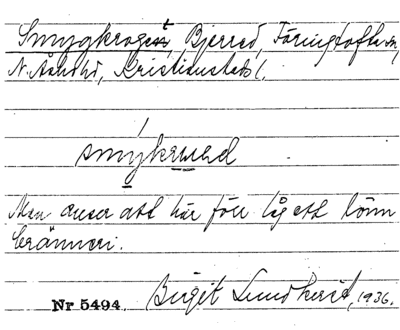 Smygkroget, Bjerred, Färingtofta sn,
N. Åsbo hd, Kristianstads l.
smýkrωəd
Man anser att här förr låg ett lönn
bränneri.
Nr 5494. Birgit Lundkvist, 1936.